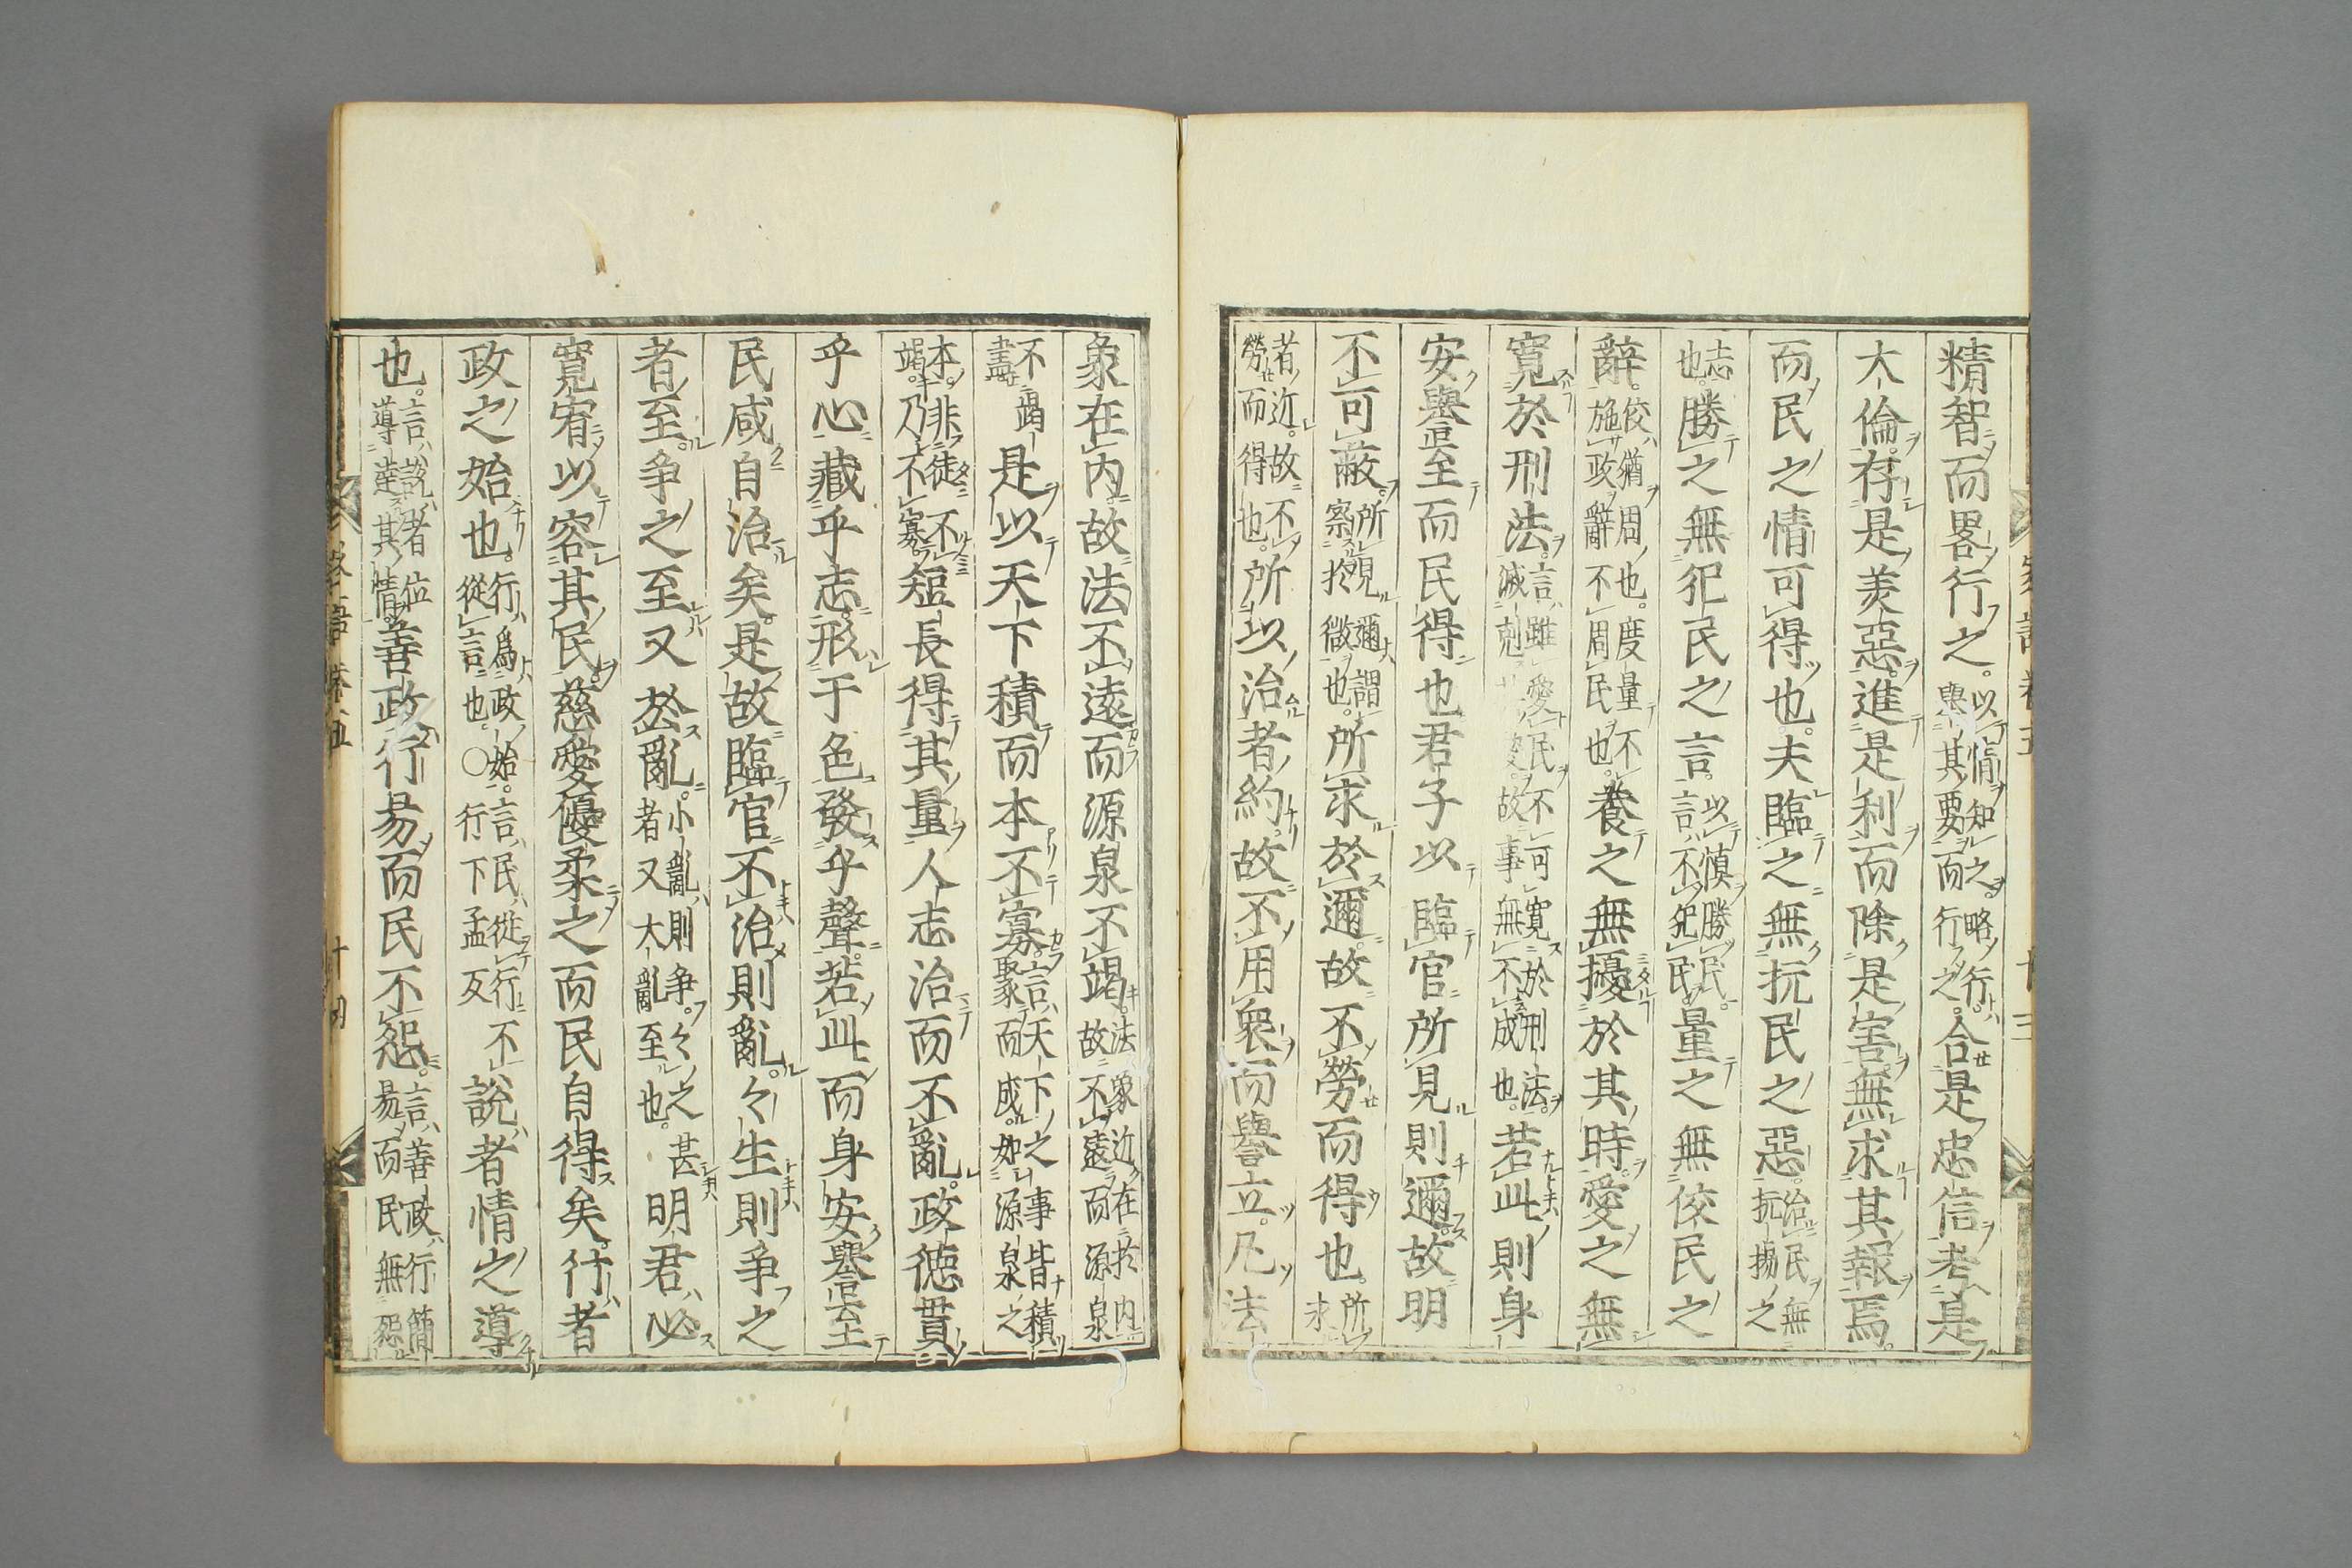 精智而畧行之。以情知之略行。舉其要而行之。合是忠信考是
大倫存是美惡進是利而除是害無求其報焉。
而民之情可得也夫臨之無抗民之惡治民無抗揚之
志也。勝之無犯民之言。以慎勝民。言不犯民量之無佼民之
辭。佼猶周也。度量不施政辭不周民也。養之無擾於其時愛之無
寬於刑法。言雖愛民不可寬於刑法。滅剋愛。故事無不成也。若此則身
安譽至而民得也君子以臨官所見則邇故明
不可蔽。所見邇謂察於微也。所求於邇故不勞而得也。所求
者近。故不勞而得也。所以治者約。故不用衆而譽立。凡法
象在内故法不遠而源泉不竭。法象近在於内故不遠而源泉
不竭盡是以天下積而本不寡。言天下之事皆積聚而成。如源泉之
本。非徒不竭。乃不寡。短長得其量人志治而不亂。政德貫
乎心藏乎志形于色發乎聲。若此而身安譽至
民咸自治矣。是故臨官不治則亂。々生則爭之
者至。爭之至又於亂。小亂則爭。々之者又大亂至也。甚明君必
寬宥以容其民慈愛優柔之而民自得矣行者
政之始也。行爲政始。言民從行不從言也。〇行下孟反說者情之導
也。言說者位導達其情善政行易而民不怨。言善政行簡易而民無怨